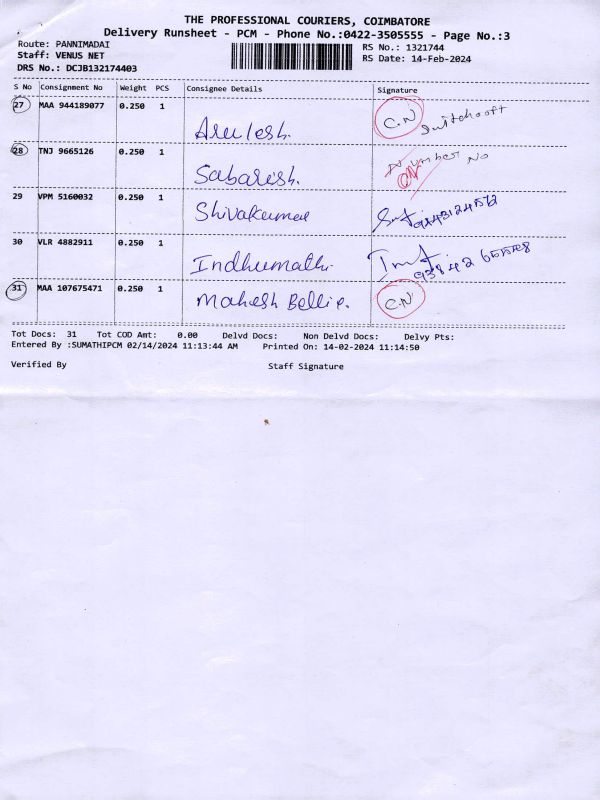 THE PROFESSIONAL COURIERS, COIMBATORE
Delivery Runsheet - PCM - Phone No.:0422-3505555 - Page No.:3
Route: PANNIMADAI
Staff: VENUS NET
DRS No.: DCJB132174403
RS No.: 1321744
RS Date: 14-Feb-2024
S No Consignment No Weight PCS Consignee Details Signature
27 MAA 944189077 0.250 1
Arulesh. C.N Switchooft
28 TNJ 9665126 0.250 1
Sabarish. Number No
29 VPM 5160032 0.250 1
Shivakumar
30 VLR 4882911 0.250 1
Indhumathi
31 MAA 107675471 0.250 1
Mahesh C.N
Tot Docs: 31 Tot COD Amt: 0.00 Delvd Docs: Non Delvd Docs: Delvy Pts:
Entered By :SUMATHIPCM 02/14/2024 11:13:44 AM Printed On: 14-02-2024 11:14:50
Verified By Staff Signature